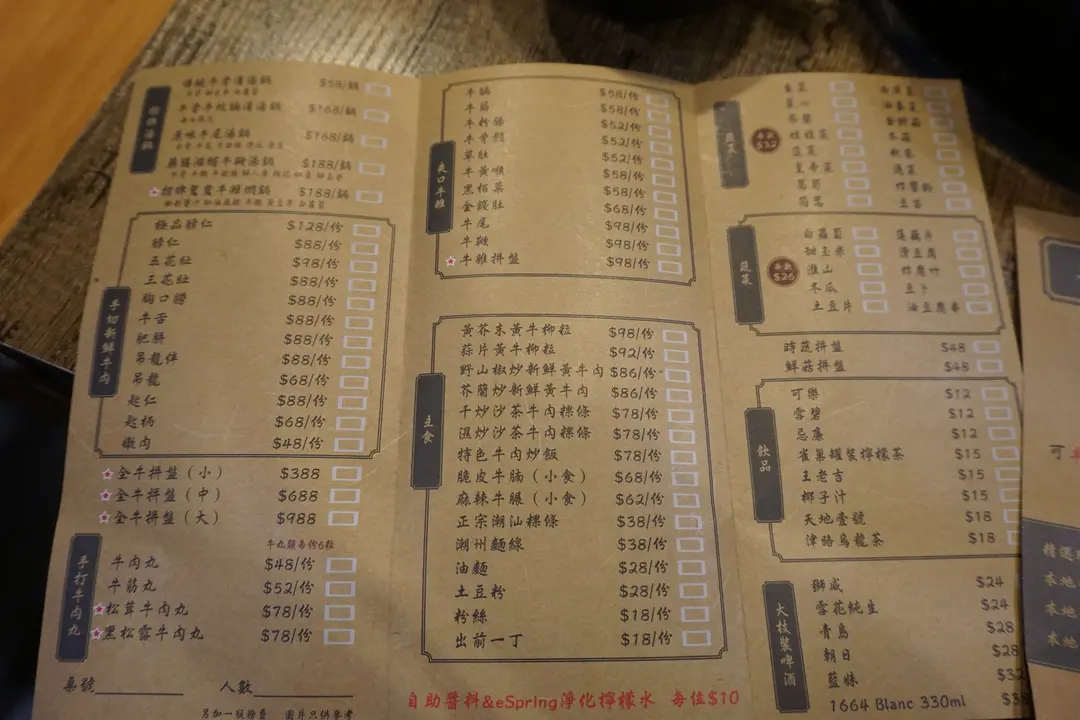 牛骨清湯鍋 $58/鍋
$168/鍋
原味牛尾湯鍋 $168/鍋
$188/鍋
招牌鴛鴦牛雜焗鍋 $188/鍋
極品膝仁 $128/份
膝仁 $88/份
五花趾 $98/份
三花趾 $88/份
胸口撈 $88/份
牛舌 $88/份
肥胼 $88/份
吊龍伴 $88/份
吊龍 $68/份
匙仁 $88/份
匙柄 $68/份
嫩肉 $48/份
手切新鮮牛肉
全牛拼盤（小） $388
全牛拼盤（中） $688
全牛拼盤（大） $988
牛丸類每份6粒
手打牛肉丸
牛肉丸 $48/份
牛筋丸 $52/份
松茸牛肉丸 $78/份
黑松露牛肉丸 $78/份
桌號
人數
另加一服務費 圖片只供參考
爽口牛雜
牛腩 $58/份
牛筋 $58/份
牛粉腸 $52/份
牛骨髓 $52/份
草肚 $52/份
牛黃喉 $58/份
黑柏葉 $58/份
金錢肚 $68/份
牛尾 $98/份
牛鞭 $98/份
牛雜拼盤 $98/份
主食
黃芥末黃牛柳粒 $98/份
蒜片黃牛柳粒 $92/份
野山椒炒新鮮黃牛肉 $86/份
芥蘭炒新鮮黃牛肉 $86/份
干炒沙茶牛肉粿條 $78/份
濕炒沙茶牛肉粿條 $78/份
特色牛肉炒飯 $78/份
脆皮牛腩（小食） $68/份
麻辣牛𦟌（小食） $62/份
正宗潮汕粿條 $38/份
潮州麵線 $38/份
油麵 $28/份
土豆粉 $28/份
粉絲 $18/份
出前一丁 $18/份
自助醬料&eSpring淨化檸檬水 每位$10
蔬菜
每款 $32
生菜 西洋菜
菜心 油麥菜
茶樹 金針菇
娃娃菜 冬菇
菠菜 秋葵
皇帝菜 通菜
茼蒿 炸響鈴
豆苗
蔬菜
每款 $26
白蘿蔔 蓮藕片
甜玉米 滑豆腐
淮山 炸腐竹
冬瓜 豆卜
土豆片 油豆腐串
時蔬拼盤 $48
鮮菇拼盤 $48
飲品
可樂 $12
雪碧 $12
忌廉 $12
雀巢罐裝檸檬茶 $15
王老吉 $15
椰子汁 $15
天地壹號 $18
津路烏龍茶 $18
大枝裝啤酒
獅威 $24
雪花純生 $24
青島 $28
朝日 $28
藍妹 $32
1664 Blanc 330ml
可
精選
本地
本地
本地